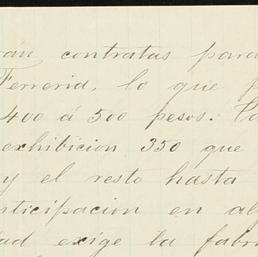 ran contratas para
Ferreria, lo que p
400 á 500 pesos. Co
exhibicion 350 que
y el resto hasta
nticipacion en al
dad exige la fabri